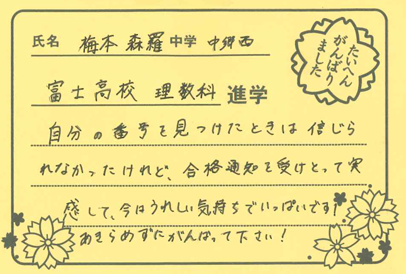 氏名 梅本 森羅 中学 中郷西
たいへん
がんばり
ました
富士高校 理数科 進学
自分の番号を見つけたときは信じら
れなかったけれど、合格通知を受けとって実
感して、今はうれしい気持ちでいっぱいです!
あきらめずにがんばって下さい!